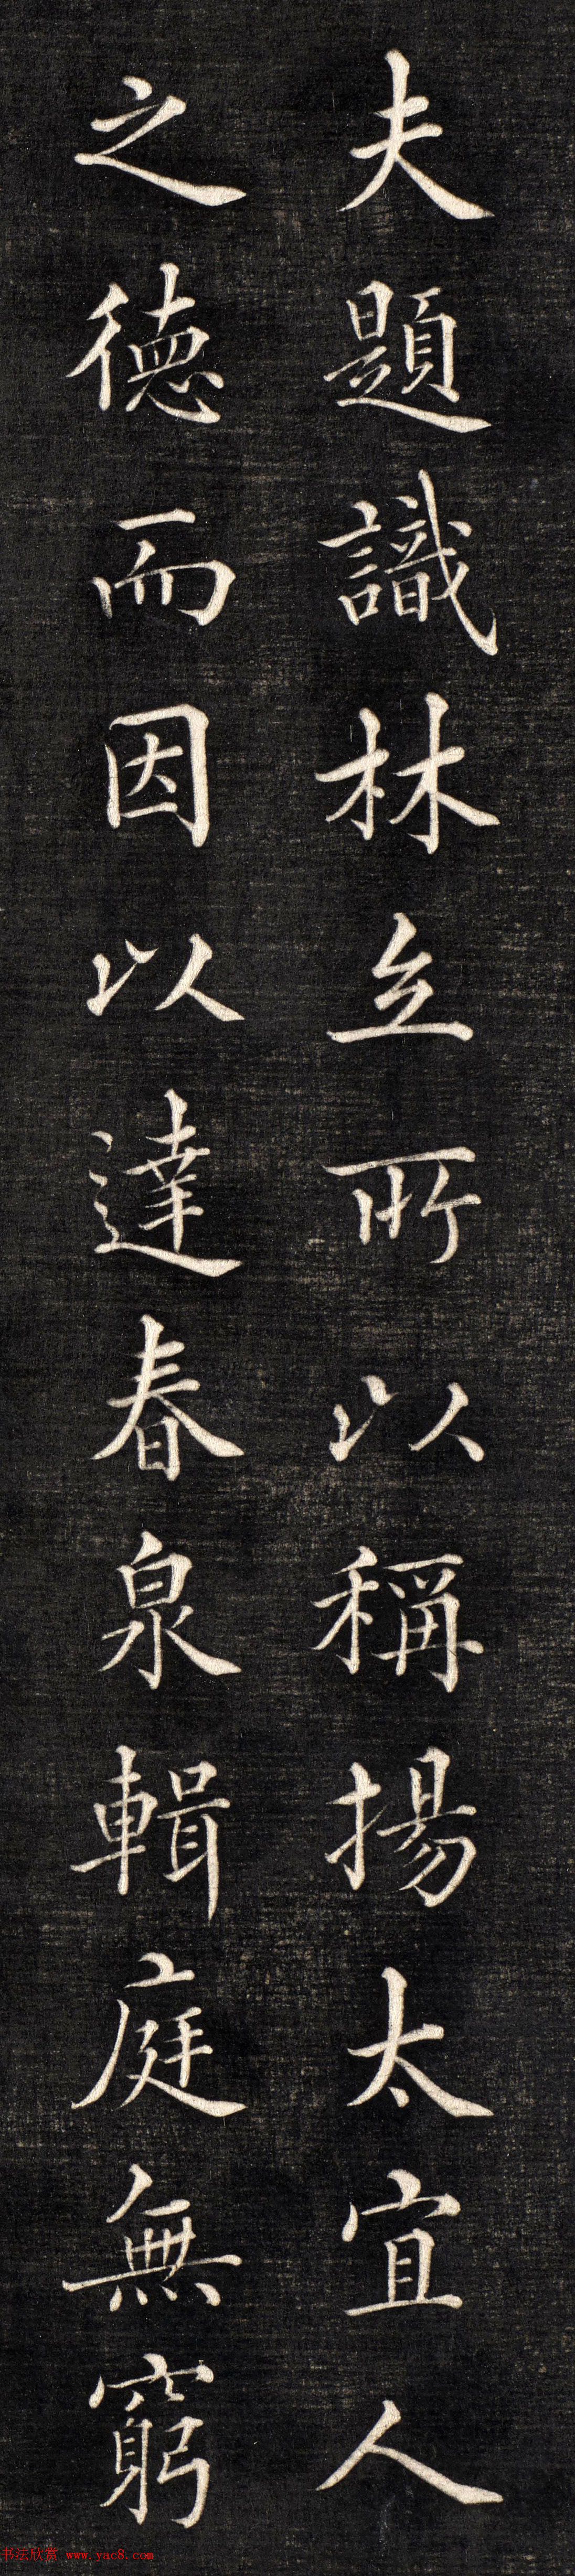 夫題識林立所以稱揚太宜人
之德而因以達春泉輯庭無窮
书法欣赏 www.yac8.com